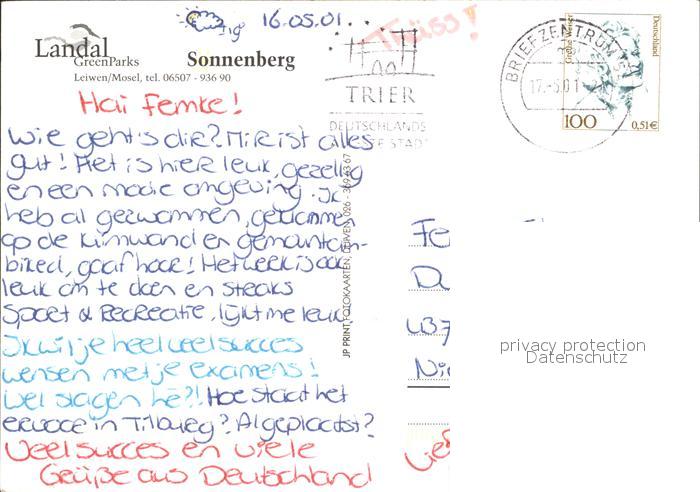 16.05.01.
Tsüss!
Landal
GreenParks
Sonnenberg
Leiwen/Mosel, tel. 06507 - 936 90
TRIER
DEUTSCHLANDS
BRIEFZENTRUM 54
17.-5.01
Grethe Weiser
Deutschland
100
0,51€
Hai Femke!
Wie geht's dir? Mir ist alles
gut! Het is hier leuk, gezellig
en een mooie omgeving. Ik
heb al gezwommen, geklommen
op de klimwand en gemountain-
biked, gaaf hoor! Het werk is ook
leuk om te doen en steaks
Sport & Recreatie, lijkt me leuk
Ik wil je heel veel succes
wensen met je examens!
Wel slagen hè?! Hoe staat het
ervoor in Tilburg? Al geplaatst?
Veel succes en viele
Grüße aus Deutschland
JP PRINT, FOTOKAARTEN, DUIVEN, 026 - 369 63 67
Fe
437
Ni
privacy protection
Datenschutz